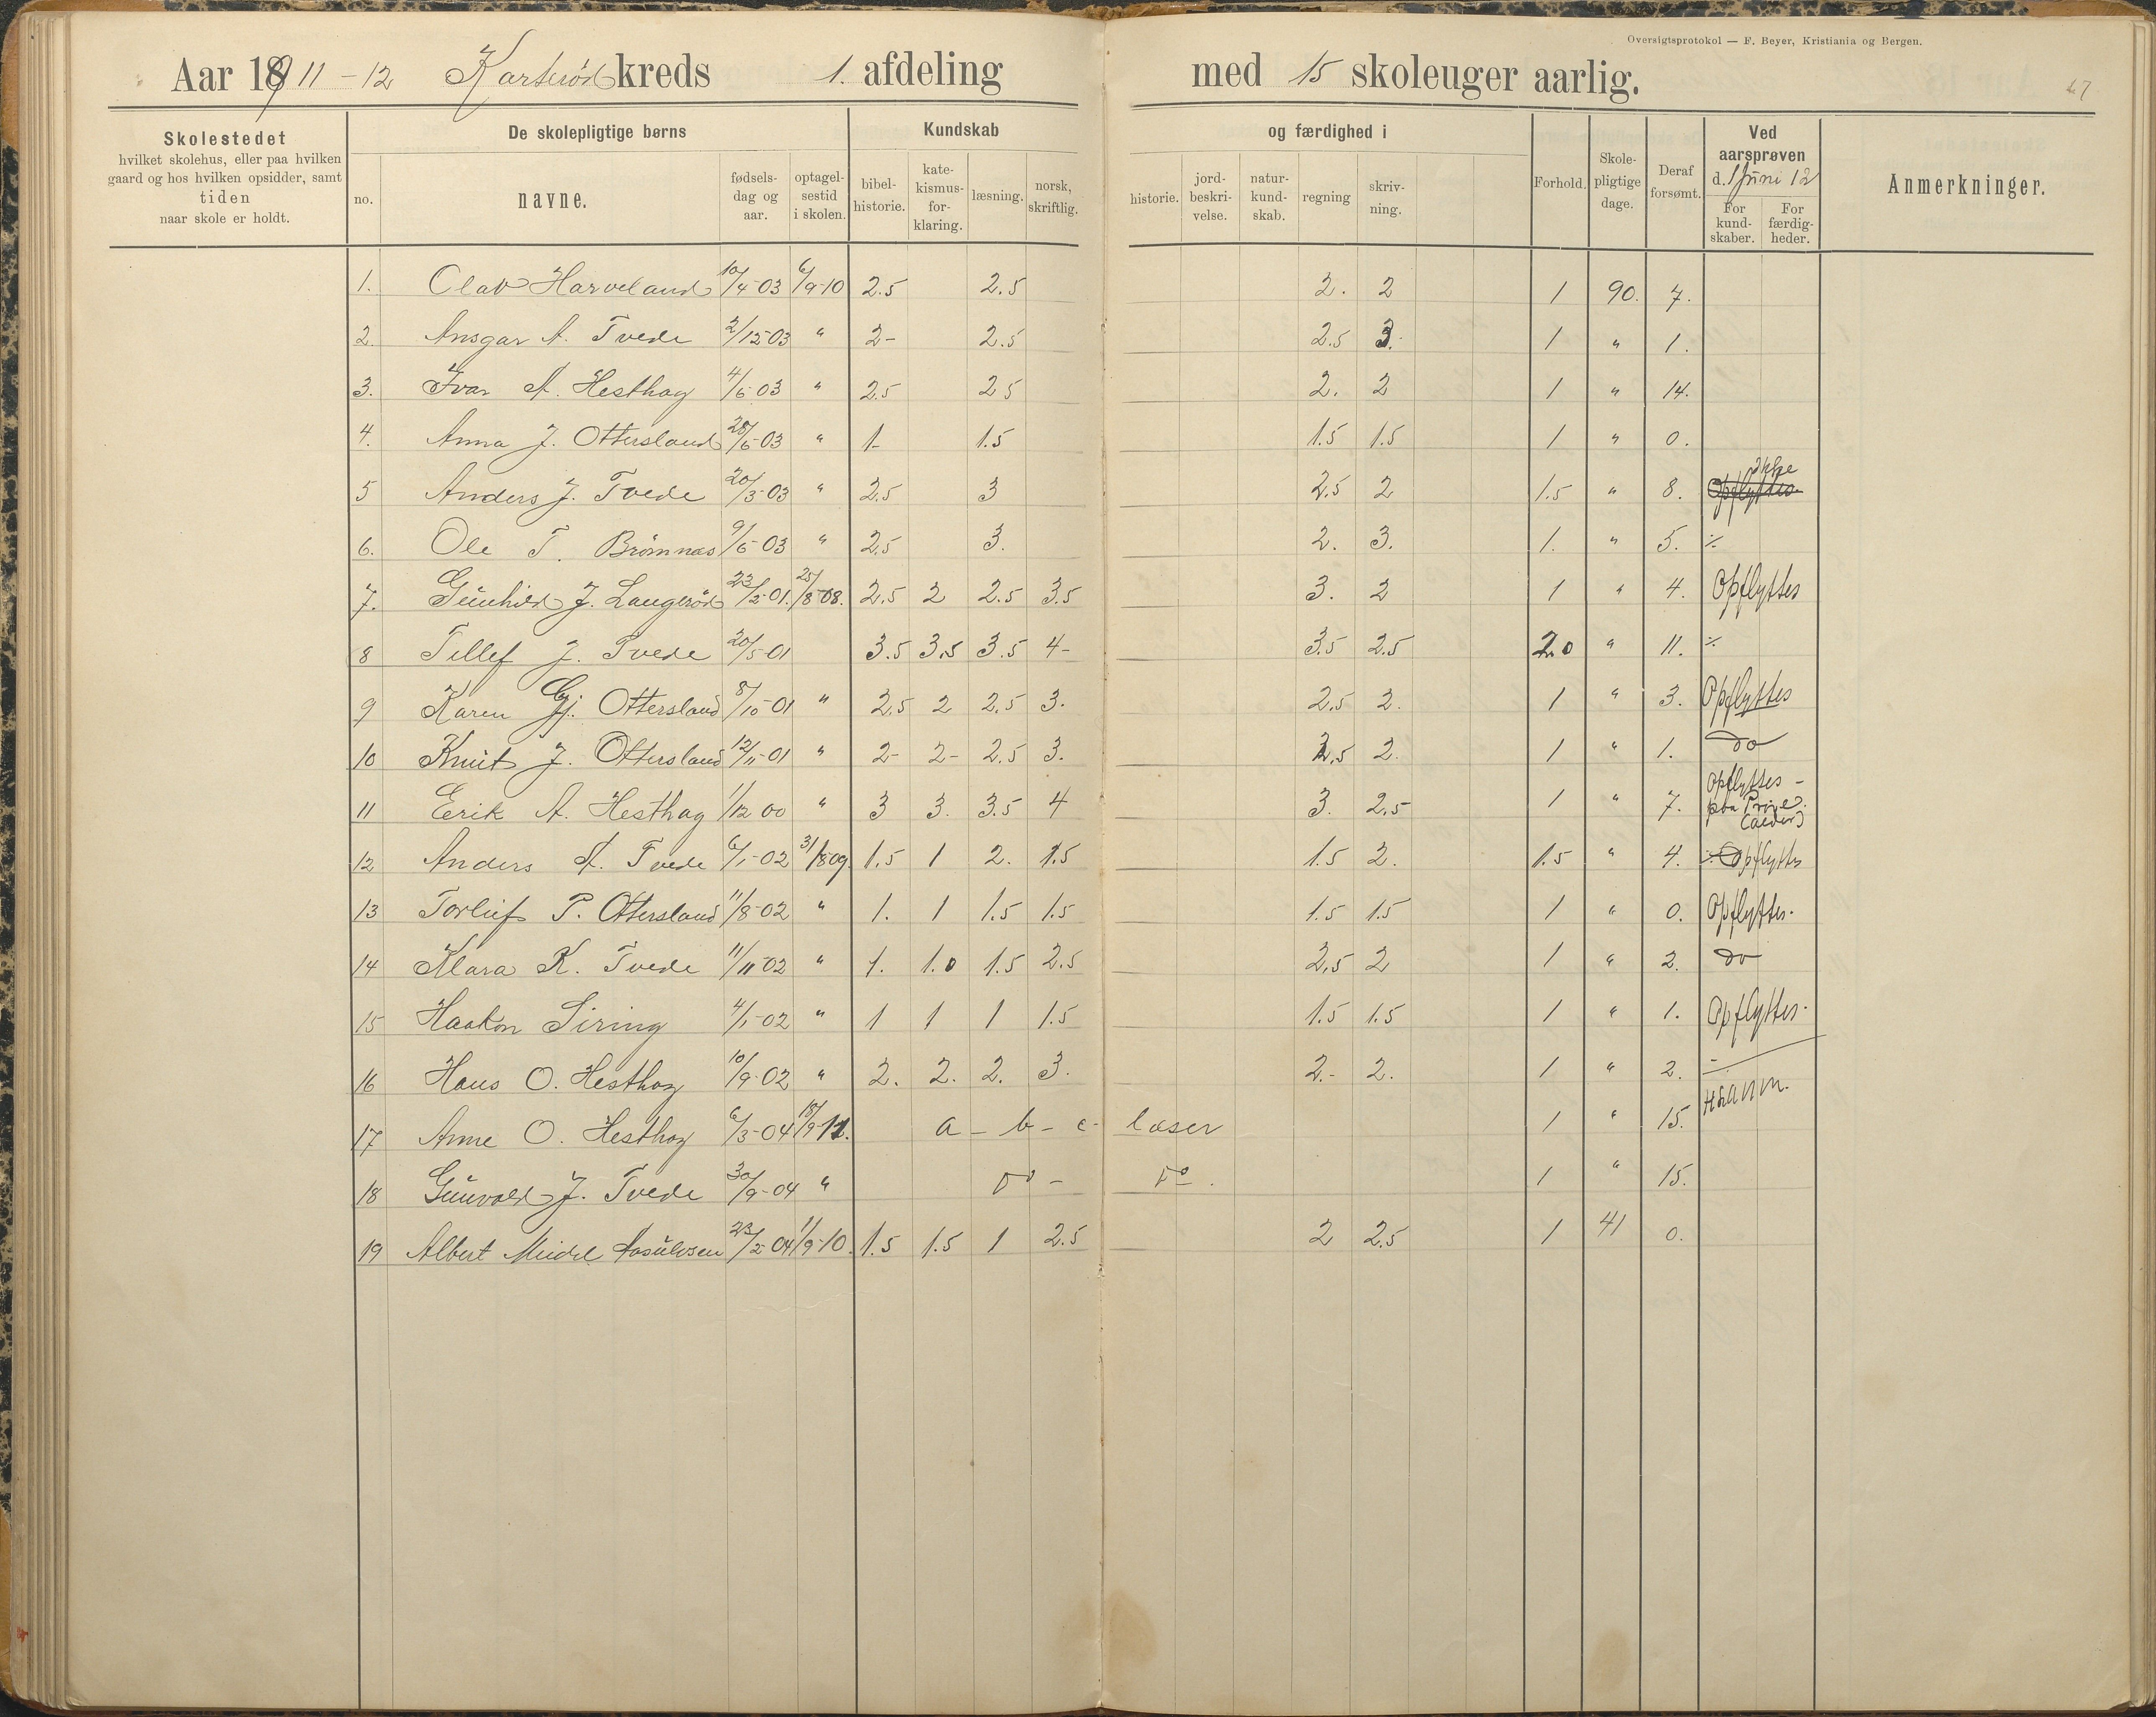 Oversigtsprotokol — F. Beyer, Kristiania og Bergen.
Aar 1911-12 Karterød kreds 1. afdeling med 15 skoleuger aarlig.
27
Skolestedet
hvilket skolehus, eller paa hvilken
gaard og hos hvilken opsidder, samt
tiden
naar skole er holdt.
De skolepligtige børns
no.
navne.
fødsels-
dag og
aar.
optagel-
sestid
i skolen.
Kundskab
bibel-
historie.
kate-
kismus-
for-
klaring.
læsning.
norsk,
skriftlig.
og færdighed i
historie.
jord-
beskri-
velse.
natur-
kund-
skab.
regning
skriv-
ning.
Forhold.
Skole-
pligtige
dage.
Deraf
forsømt.
Ved
aarsprøven
d. 1 Juni 12
For
kund-
skaber.
For
færdig-
heder.
Anmerkninger.
1. Olav Harveland 10/4-03 6/9-10 2.5 2.5 2. 2 1 90. 7.
2. Ansgar A. Tvede 2/12-03 " 2- 2.5 2.5 3. 1 " 1.
3. Ivar A. Hesthag 4/6-03 " 2.5 2.5 2. 2 1 " 14.
4. Anna J. Ottersland 28/6-03 " 1- 1.5 1.5 1.5 1 " 0.
5 Anders J. Tvede 20/3-03 " 2.5 3 2.5 2 1.5 " 8. Opflyttes ikke
6. Ole T. Brømnæs 9/6-03 " 2.5 3. 2. 3. 1. " 5. ./.
7. Gunhild J. Langerød 23/2-01. 25/8-08. 2.5 2 2.5 3.5 3. 2 1 " 4. Opflyttes
8 Tellef J. Tvede 20/5-01 3.5 3.5 3.5 4- 3.5 2.5 2.0 " 11. ./.
9 Karen Gj. Ottersland 8/10-01 " 2.5 2 2.5 3. 2.5 2. 1 " 3. Opflyttes
10 Knut J. Ottersland 12/11-01 " 2- 2- 2.5 3. 2.5 2. 1 " 1. do
11 Eerik A. Hesthag 1/12 00 " 3 3. 3.5 4 3. 2.5 1 " 7. Opflyttes -
paa Prøve.
(alder)
12 Anders A. Tvede 6/1-02 31/8-09. 1.5 1 2. 1.5 1.5 2. 1.5 " 4. Opflyttes
13 Torleif P. Ottersland 11/8-02 " 1. 1 1.5 1.5 1.5 1.5 1 " 0. Opflyttes.
14 Klara K. Tvede 11/11-02 " 1. 1.0 1.5 2.5 2.5 2 1 " 2. do
15 Haakon Siring 4/1-02 " 1 1 1 1.5 1.5 1.5 1 " 1. Opflyttes.
16 Hans O. Hesthag 10/9-02 " 2. 2. 2. 3. 2.- 2. 1 " 2. -
17 Anne O. Hesthag 6/3-04 18/9-11. a - b - c- læser 1 " 15.
18 Gunvald J. Tvede 30/9-04 " do - do. 1 " 15.
19 Albert Meidel Aasulvsen 23/2-04 1/9-10. 1.5 1.5 1 2.5 2 2.5 1 41 0.